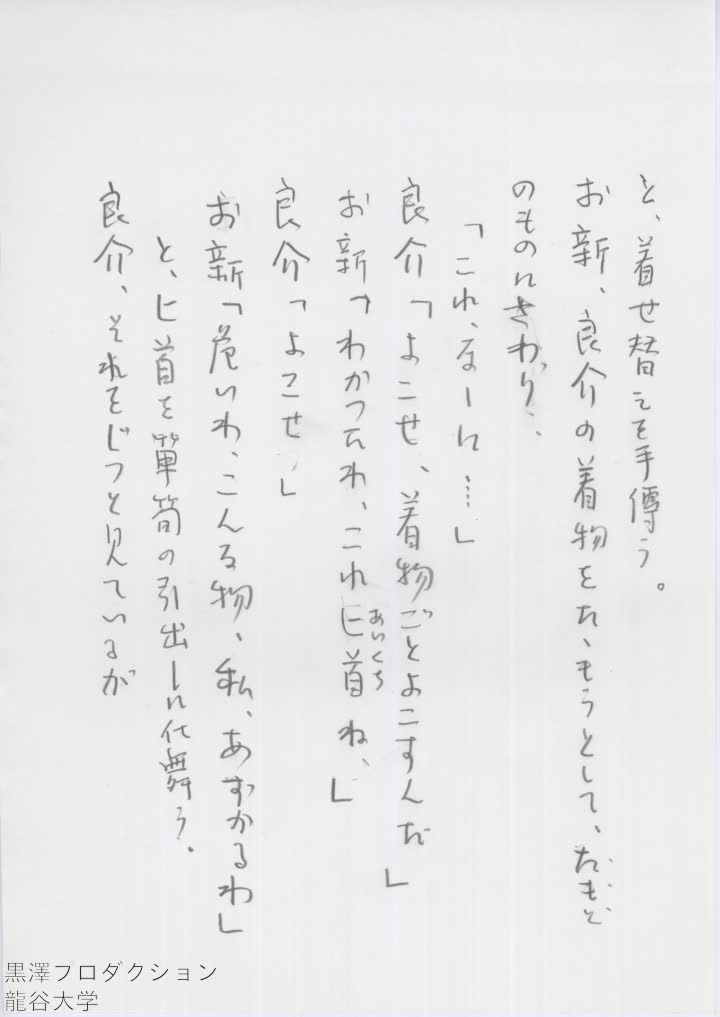 と、着せ替えを手傳う。
お新、良介の着物をたゝもうとして、たもと
のものにさわり、
「これ、なーに……」
良介「よこせ、着物ごとよこすんだ」
お新「わかったわ、これ匕首ね、」
あいくち
良介「よこせ、」
お新「危いわ、こんな物、私、あずかるわ」
と、匕首を箪笥の引出しに仕舞う。
良介、それをじっと見ているが
黒澤プロダクション
龍谷大学